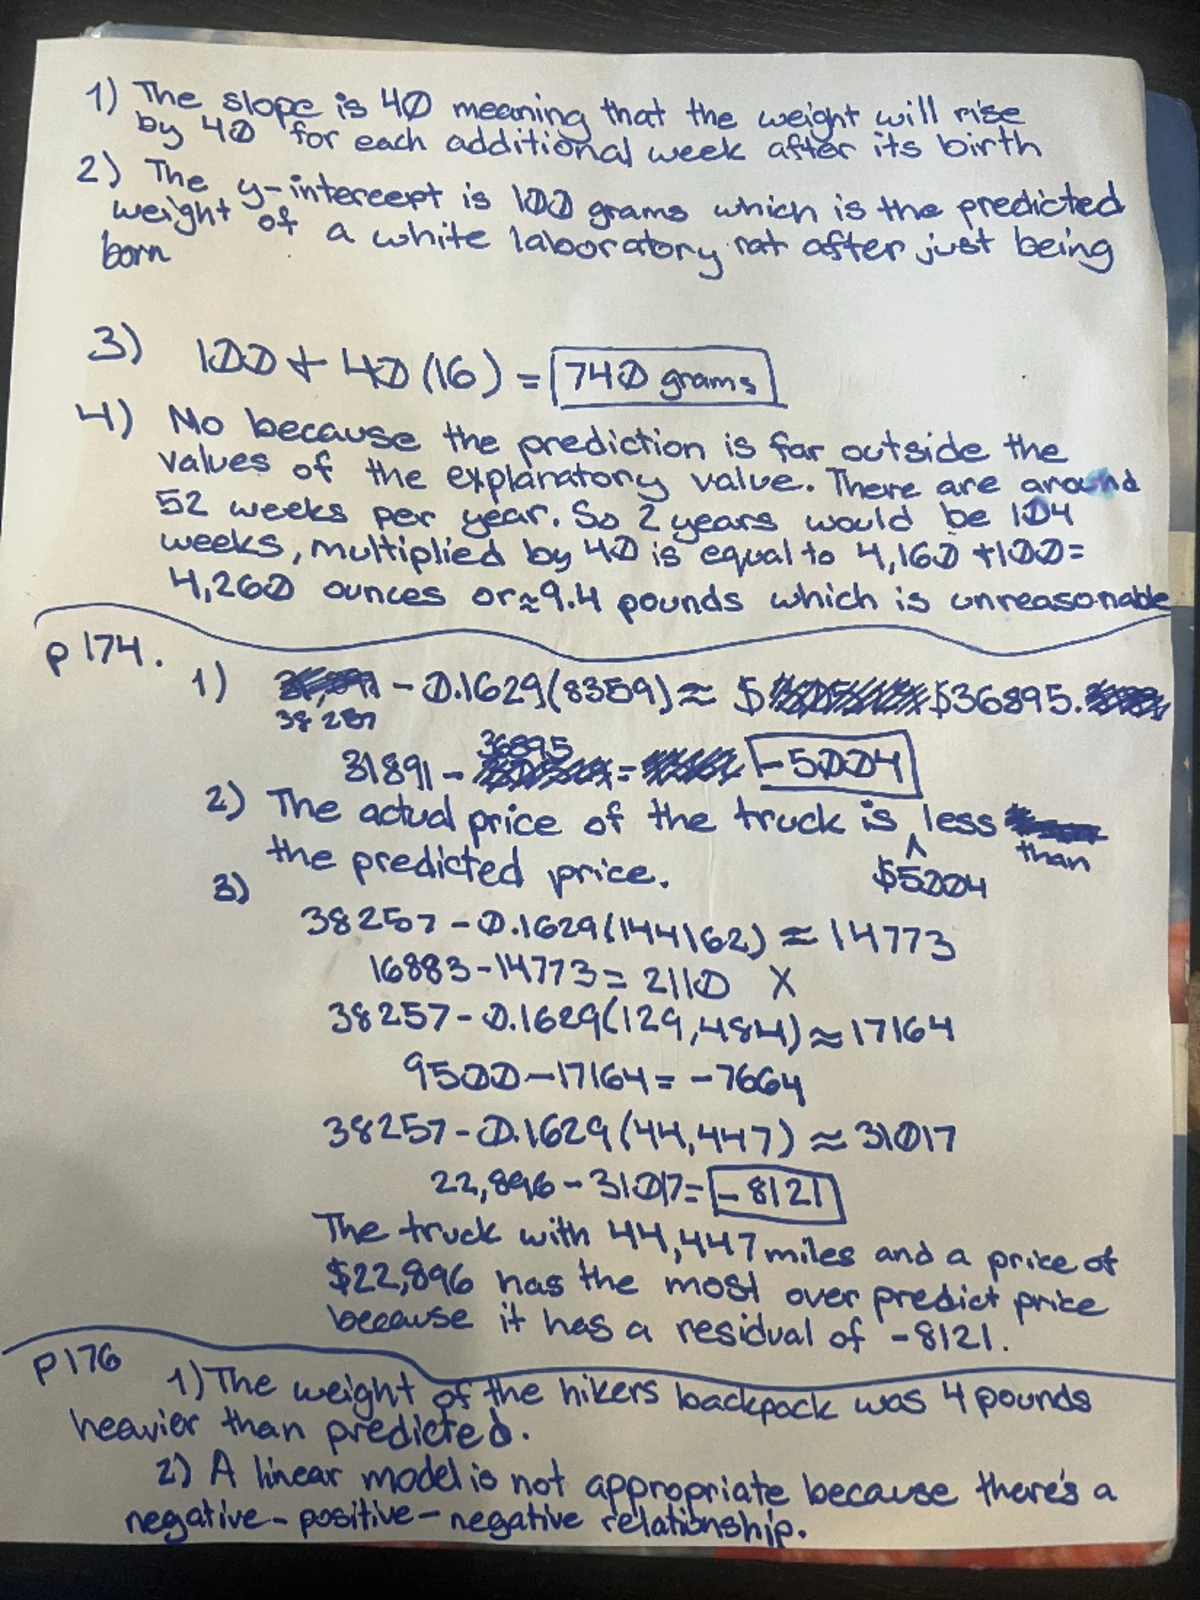 1) The slope is 40 meaning that the weight will rise
by 40 for each additional week after its birth
2) The y-intercept is 100 grams which is the predicted
weight of a white laboratory rat after just being
born
3) 100 + 40 (16) = 740 grams
4) No because the prediction is far outside the
values of the explanatory value. There are around
52 weeks per year. So 2 years would be 104
weeks, multiplied by 40 is equal to 4,160 +100=
4,260 ounces or ≈9.4 pounds which is unreasonable
p 174.
1) - 0.1629(8359) ≈ $ $36895.
38 257
36895
31891 - = -5004
2) The actual price of the truck is less
the predicted price. ^ than
$5004
3)
38257 - 0.1629(144162) ≈ 14773
16883-14773 = 2110 X
38257 - 0.1629(129,484) ≈ 17164
9500-17164 = -7664
38257 - 0.1629 (44,447) ≈ 31017
22,896 - 31017= -8121
The truck with 44,447 miles and a price of
$22,896 has the most over predict price
because it has a residual of -8121.
p176
1) The weight of the hikers backpack was 4 pounds
heavier than predicted.
2) A linear model is not appropriate because there's a
negative-positive-negative relationship.